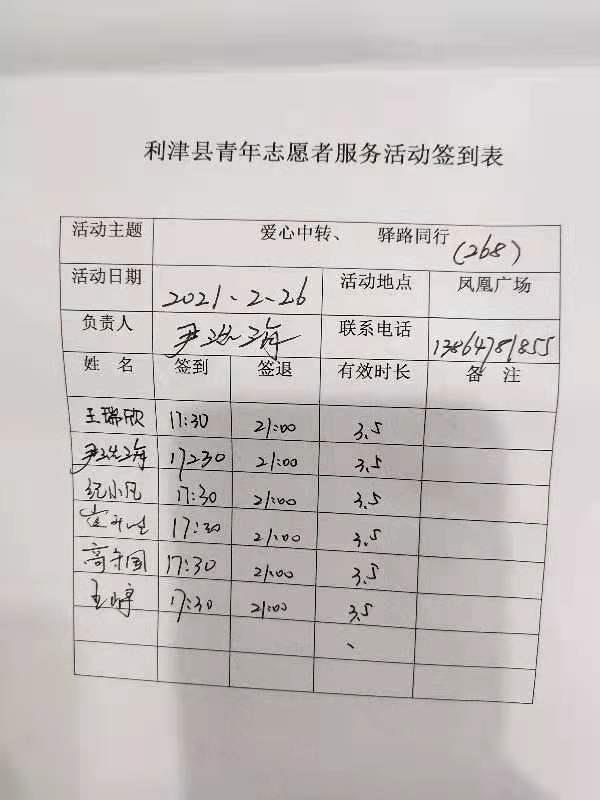 利津县青年志愿者服务活动签到表
活动主题 爱心中转、 驿路同行 (268)
活动日期 2021、2-26 活动地点 凤凰广场
负责人 联系电话 13864781855
姓名 签到 签退 有效时长 备注
王瑞欣 17:30 21:00 3.5
17230 21:00 3.5
纪小凡 17:30 21:00 3.5
17:30 21:00 3.5
高守国 17:30 21:00 3.5
17:30 21:00 3.5
、